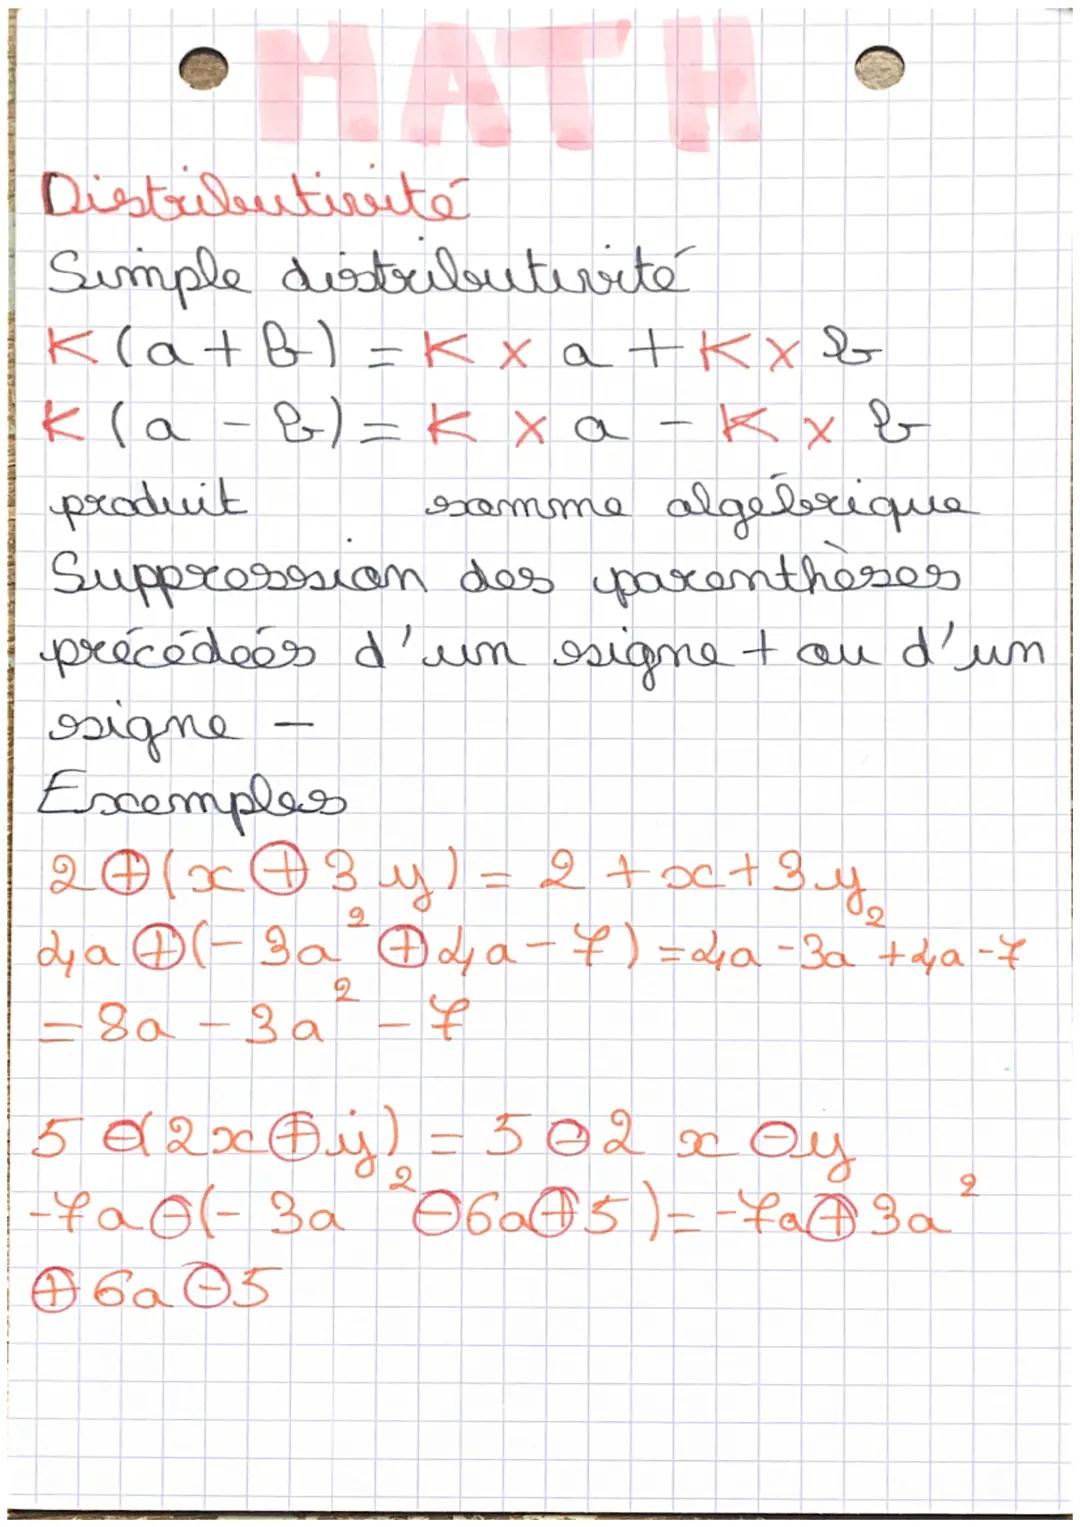 MATH
Distributivité
Simple distributivité
K (a + b) = K × a + K × b
K (a - b) = K × a - K × b
produit somme algébrique
Suppression des parenthèses
précédées d'un signe + ou d'un
signe -
Exemples
2 ⊕ (x ⊕ 3 y) = 2 + x + 3y
4a ⊕ (- 3a² ⊕ 4a - 7) = 4a - 3a² + 4a - 7
= 8a - 3a² - 7
5 ⊖ (2x ⊕ y) = 5 ⊖ 2 x ⊖ y
-7a ⊖ (- 3a² ⊖ 6a ⊕ 5) = -7a ⊕ 3a²
⊕ 6a ⊖ 5